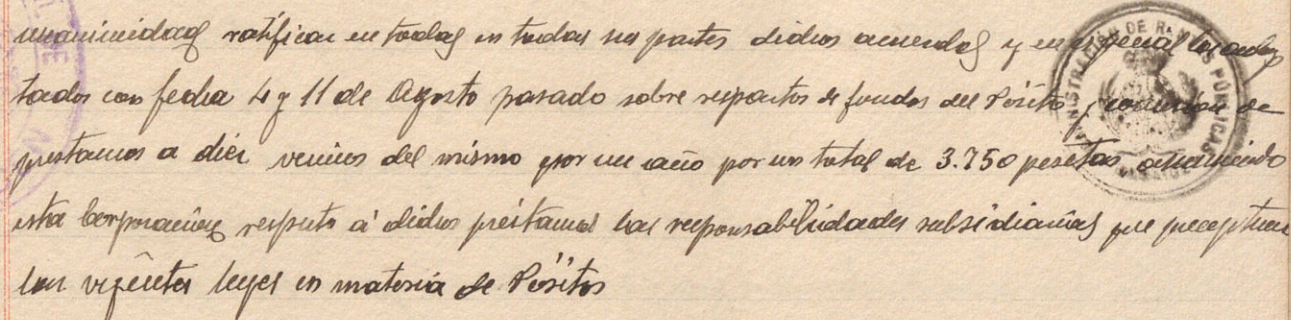 unanimidad ratificar en todas en todas sus partes dichos acuerdos y en especial los adop
tados con fecha 4 y 11 de Agosto pasado sobre repartos de fondos del Pósito, concesion de
prestamos a diez vecinos del mismo por un año por un total de 3.750 pesetas asumiendo
esta Corporación respecto á dichos préstamos las responsabilidades subsidiarias que preceptuan
las vigentes leyes en materia de Pósitos